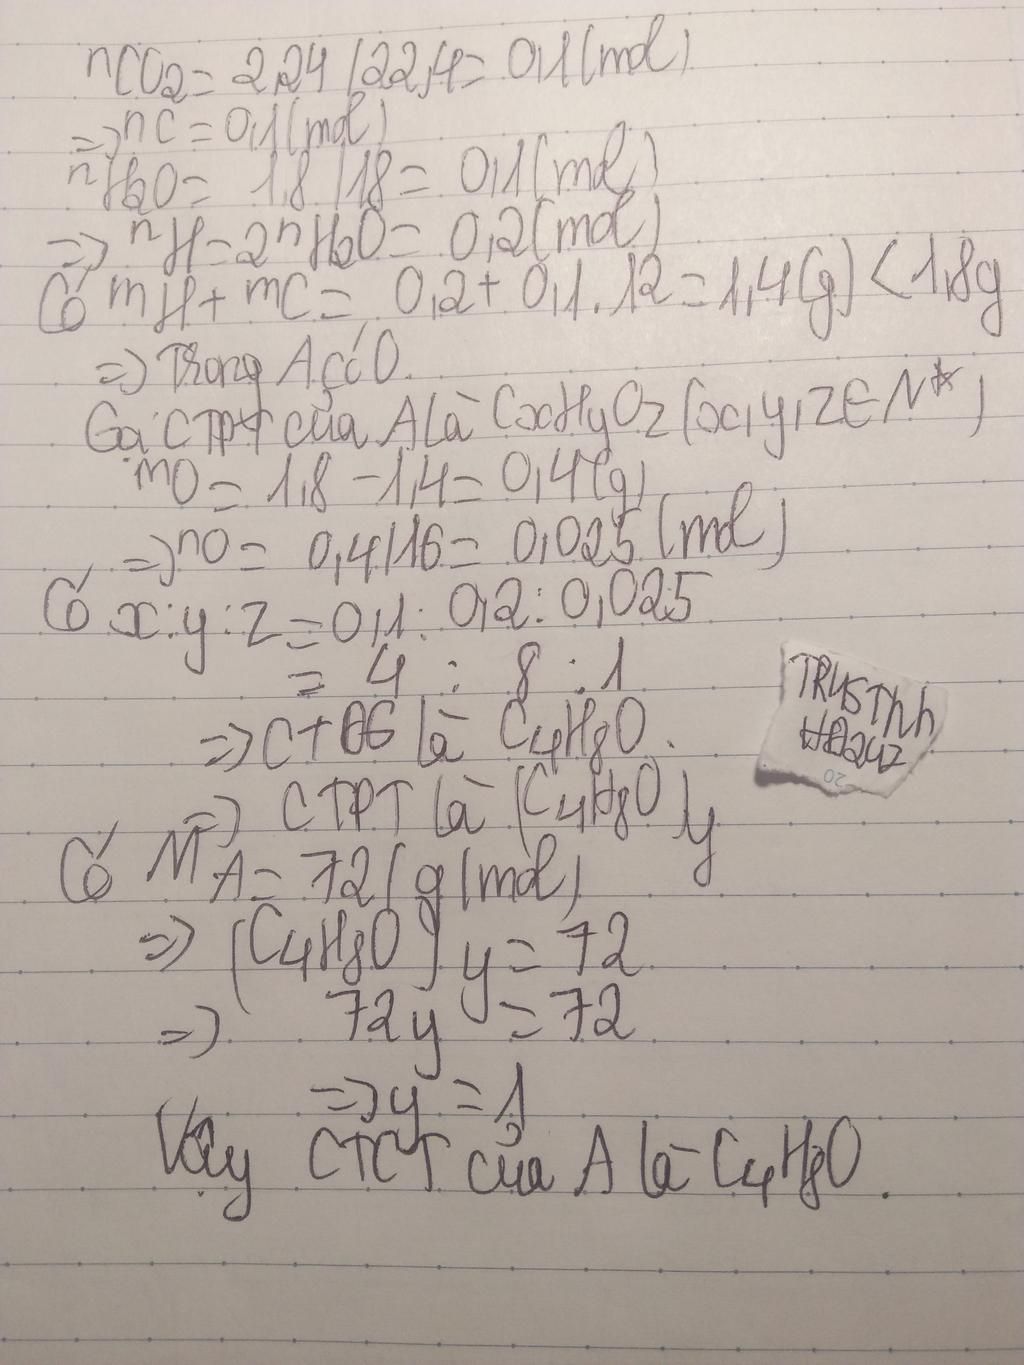 nCO2 = 2,24 / 22,4 = 0,1 (mol)
=> nC = 0,1 (mol)
nH2O = 1,8 / 18 = 0,1 (mol)
=> nH = 2nH2O = 0,2 (mol)
Có mH + mC = 0,2 + 0,1.12 = 1,4 (g) < 1,8g
=> Trong A có O.
Gọi CTPT của A là CxHyOz (x,y,z ∈ N*)
mO = 1,8 - 1,4 = 0,4 (g)
=> nO = 0,4 / 16 = 0,025 (mol)
Có x : y : z = 0,1 : 0,2 : 0,025
= 4 : 8 : 1
=> CTĐG là C4H8O.
=> CTPT là (C4H8O)y
Có MA = 72 (g/mol)
=> (C4H8O)y = 72
=> 72y = 72
=> y = 1
Vậy CTCT của A là C4H8O.
20